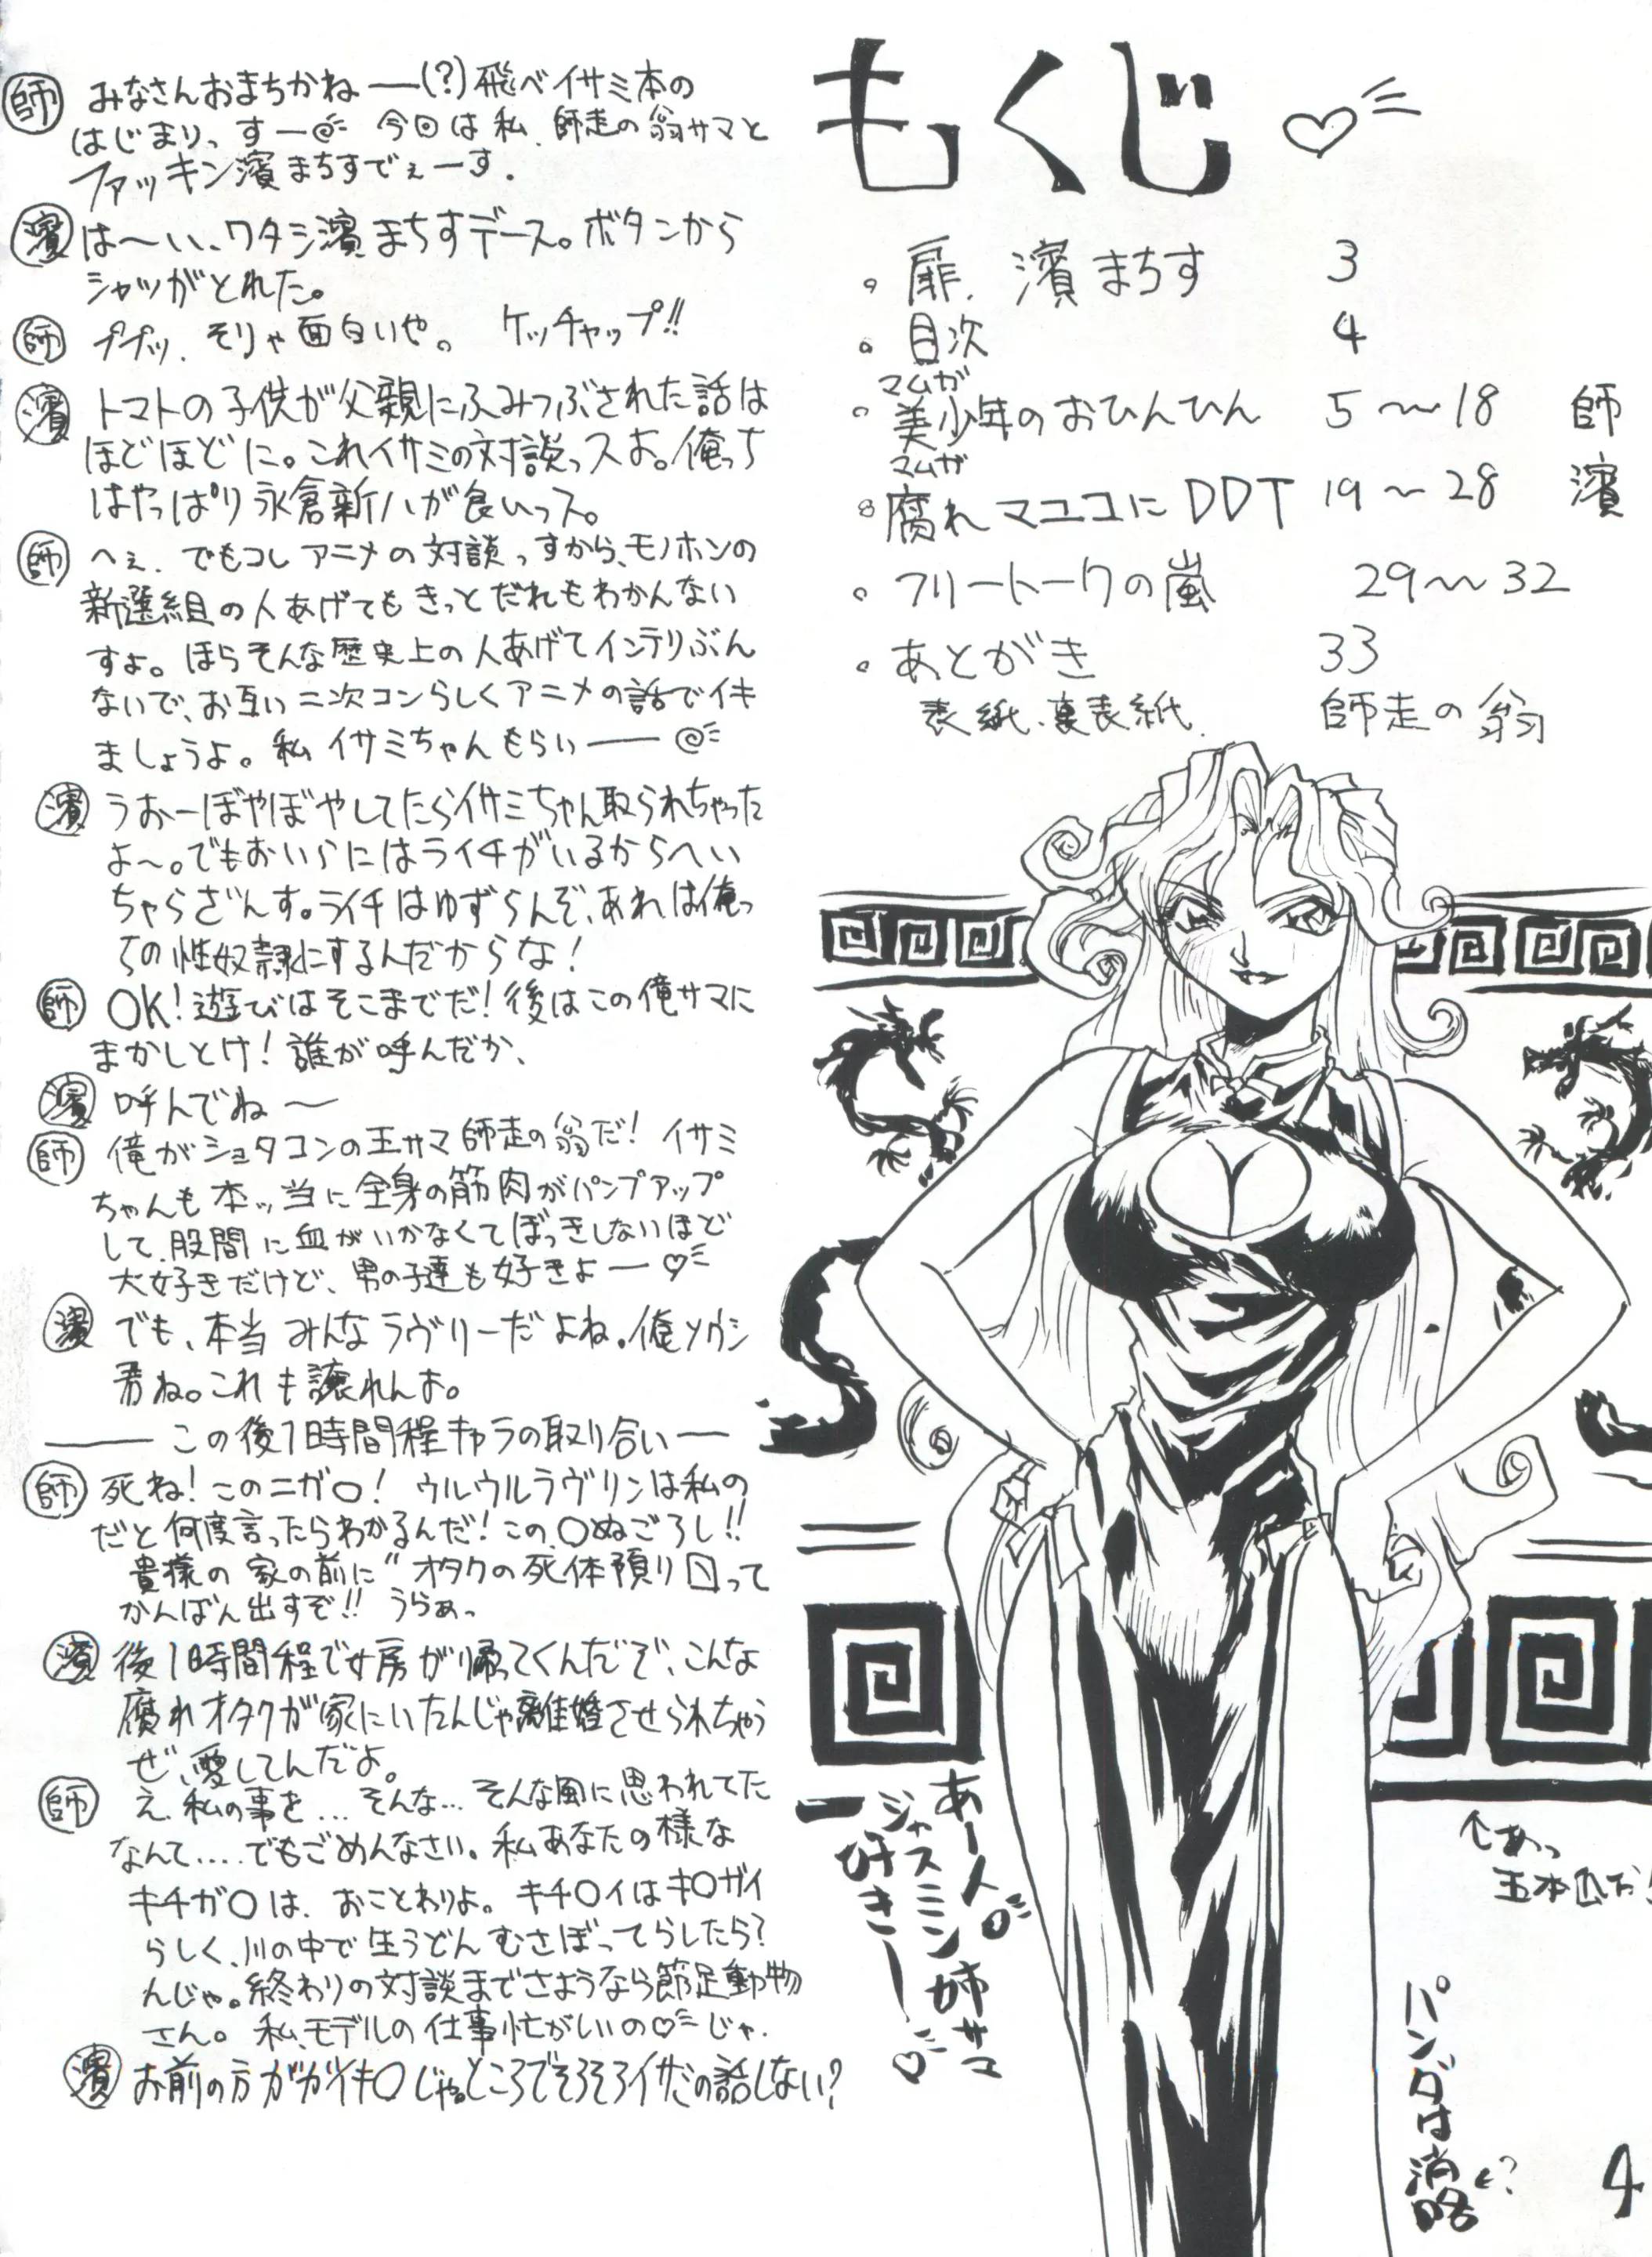 もくじ ♡
。扉、濱まちす 3
。目次 4
マムガ
。美少年のおひんひん 5〜18 師
マムガ
。腐れマユコにDDT 19〜28 濱
。フリートークの嵐 29〜32
。あとがき 33
表紙、裏表紙、 師走の翁
師 みなさんおまちかね――(?)飛べイサミ本の
はじまりっすー 今回は私、師走の翁サマと
ファッキン濱まちすでぇーす.
濱 は〜い、ワタシ濱まちすデース。ボタンから
シャツがとれた。
師 ププッ、そりゃ面白いや。 ケッチャップ!!
濱 トマトの子供が父親にふみつぶされた話は
ほどほどに。これイサミの対談っスよ。俺っち
はやっぱり永倉新八が良いっス。
師 へぇ、でもコレアニメの対談っすから、モノホンの
新選組の人あげてもきっとだれもわかんない
すよ。ほらそんな歴史上の人あげてインテリぶん
ないで、お互い二次コンらしくアニメの話でイキ
ましょうよ。私イサミちゃんもらい――
濱 うおーぼやぼやしてたらイサミちゃん取られちゃった
よ〜。でもおいらにはライチがいるからへい
ちゃらざんす。ライチはゆずらんぞ、あれは俺っ
ちの性奴隷にするんだからな!
師 OK!遊びはそこまでだ!後はこの俺サマに
まかしとけ!誰が呼んだか、
濱 呼んでね〜
師 俺がショタコンの王サマ師走の翁だ! イサミ
ちゃんも本ッ当に全身の筋肉がパンプアップ
して、股間に血がいかなくてぼっきしないほど
大好きだけど、男の子達も好きよー♡
濱 でも、本当みんなラヴリーだよね。俺ソウシ
君ね。これも譲れんよ。
――この後1時間程キャラの取り合い――
師 死ね!このニガ○! ウルウルラヴリンは私の
だと何度言ったらわかるんだ!この、○ぬごろし!!
貴様の家の前に〝オタクの死体預り□って
かんばん出すぞ!! うらぁっ
濱 後1時間程で女房が帰ってくんだぞ、こんな
腐れオタクが家にいたんじゃ離婚させられちゃう
ぜ、愛してんだよ。
師 え、私の事を…そんな…そんな風に思われてた
なんて....でもごめんなさい。私あなたの様な
キチガ○は、おことわりよ。キチ○イはキ○ガイ
らしく、川の中で生うどんむさぼってらしたら?
んじゃ。終わりの対談までさようなら節足動物
さん。 私、モデルの仕事忙がしいの♡じゃ.
濱 お前の方がガイキ○じゃ。ところでそろそろイサミの話しない?
あー人。
ジャスミン姉サマ
好きー♡
↑あっ
パンダは消
略
?
4